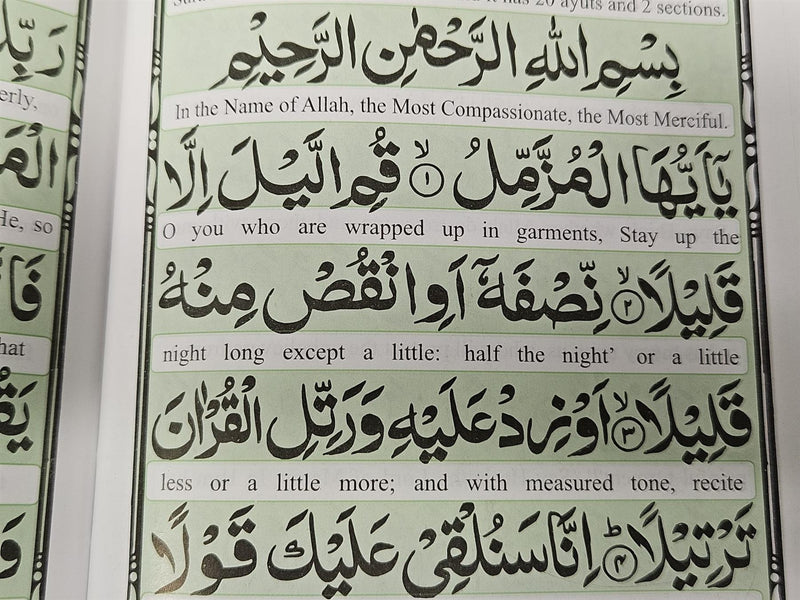 it has 20 ayuts and 2 sections.
بِسْمِ اللّٰهِ الرَّحْمٰنِ الرَّحِيْمِ
In the Name of Allah, the Most Compassionate, the Most Merciful.
يٰۤاَيُّهَا الْمُزَّمِّلُ ۙ۝۱ قُمِ الَّيْلَ اِلَّا
O you who are wrapped up in garments, Stay up the
قَلِيْلًا ۙ۝۲ نِّصْفَهٗۤ اَوِ انْقُصْ مِنْهُ
night long except a little: half the night’ or a little
قَلِيْلًا ۙ۝۳ اَوْ زِدْ عَلَيْهِ وَرَتِّلِ الْقُرْاٰنَ
less or a little more; and with measured tone, recite
تَرْتِيْلًا ؕ۝۴ اِنَّا سَنُلْقِيْ عَلَيْكَ قَوْلًا
erly,
He, so
hat